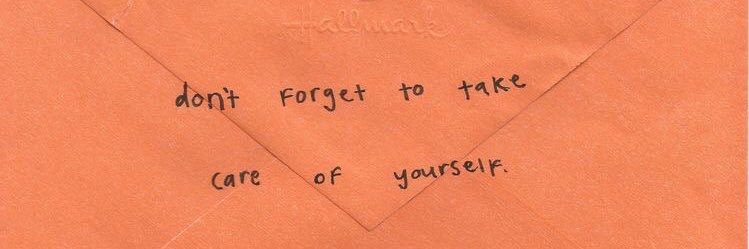 Hallmark
don't forget to take
care of yourself.